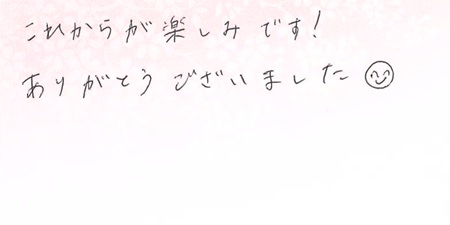 これからが楽しみです!
ありがとうございました😊